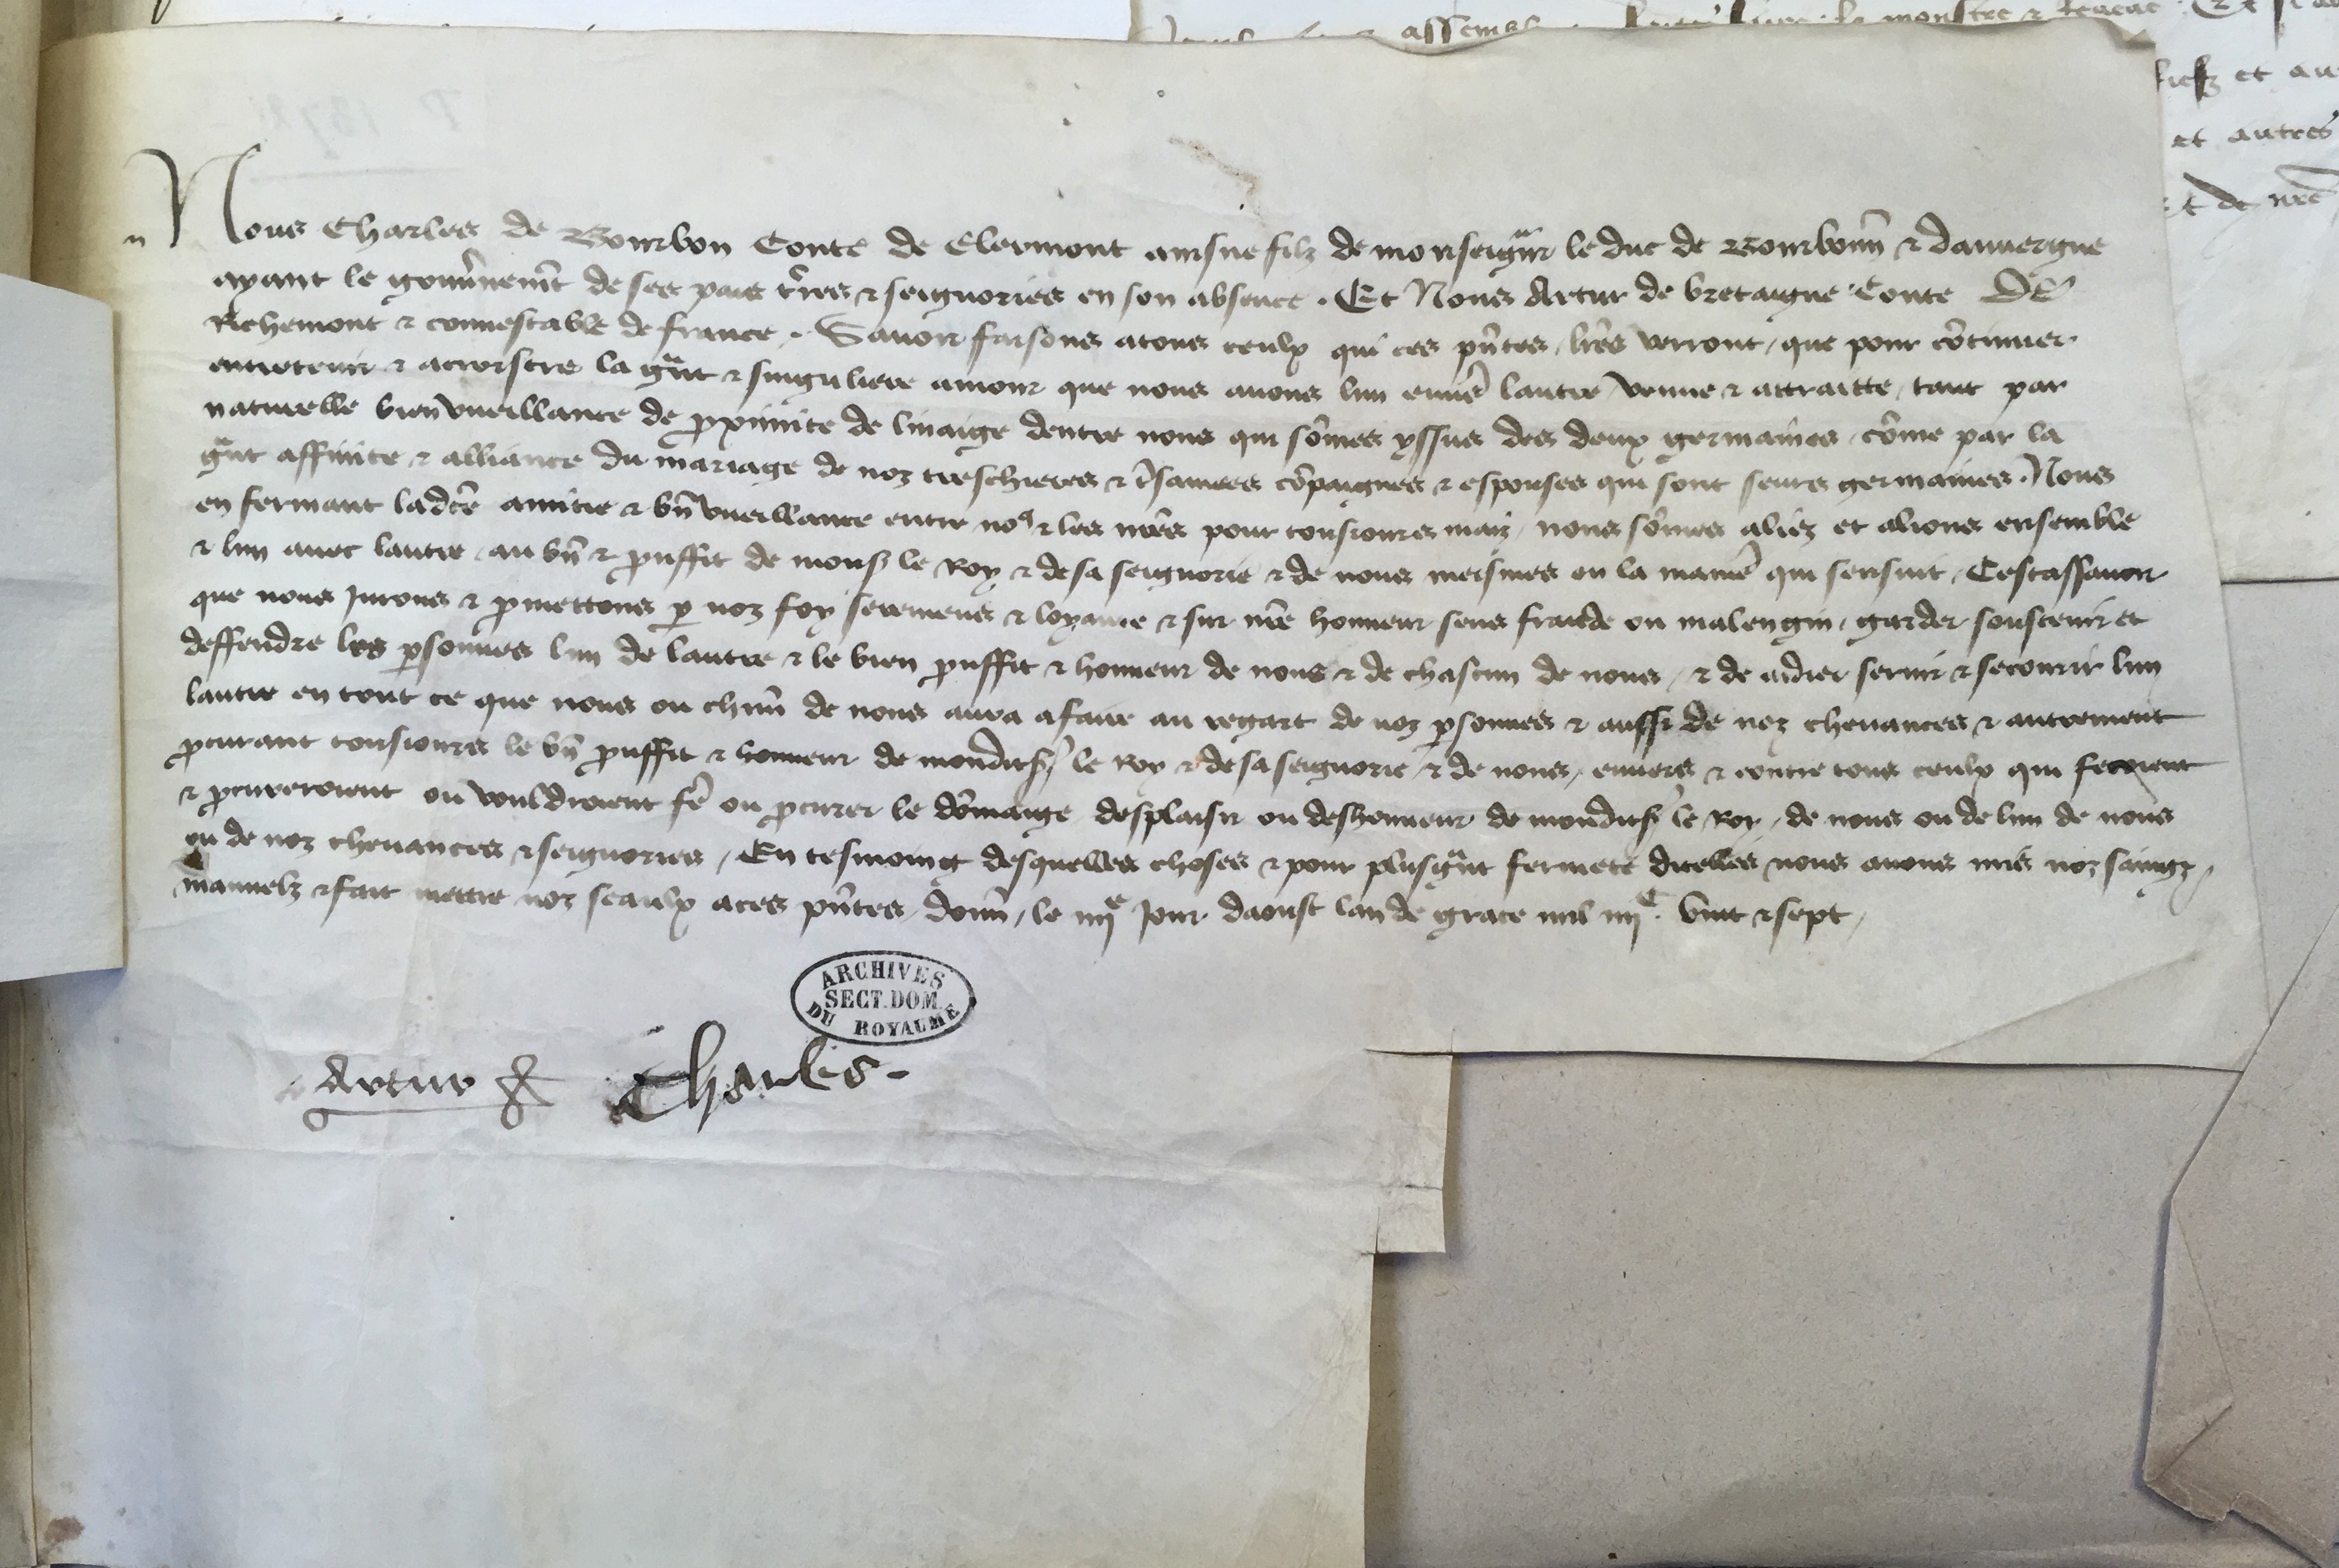 assemb
la monstre &
et au
et autres
et de nre
Nous Charles de Bourbon Conte de Clermont ainsne filz de monseigñr le duc de Bourboñn & dauuergne
ayant le gouu̾nemt̃ de ses pais tr̃res & seignories en son absence . Et Nous Artur de bretaigne Conte De
Richemont & connestable de france . Sauoir faisons atous ceulx qui ces pñtes lr̃es verront , que pour cõtinuer
entretenir & accroistre la gr̃nt & singuliere amour que nous auons lun enuẽ lautre venue & attraitte , tant par
naturelle bienvueillance de proximite de linaige dentre nous qui sõmes yssus des deux germaines , cõme par la
gr̃nt affinite & alliance du mariage de noz treschieres & tr̃samees cõpaignes & espouses qui sont seurs germaines . Nous
en fermant ladcẽ amitie & bñ vueillance entre noꝰ & les nrẽs pour tousiours maiz , nous sõmes aliez et alions ensemble
& lun auec lautre au bñ & ꝓuffit de mons̃ le Roy & de sa seignorie & de nous meismes en la maniẽ qui sensuit , Cestassauoir
que nous Jurons & ꝓmettons ꝑ noz foy seremens & loyaute & sur nrẽ honneur sens fraude ou malengin , garder soustenir et
deffendre les ꝑsonnes lun de lautre & le bien ꝓuffit & honneur de nous & de chascun de nous , & de aidier seruir & secourir lun
lautre en tout ce que nous ou chũn de nous aura afaire au regart de noz ꝑsonnes & aussi de noz cheuances & autrement
ꝓcurant tousiours le bñ ꝓuffit & honneur de mondits̃ le Roy & de sa seignorie & de nous , enuers & contre tous ceulx qui feroient
& ꝓcureroient ou vouldroient fẽ ou ꝓcurer le dõmaige desplaisir ou deshonneur de mondits̃ le Roy , de nous ou de lun de nous
ou de noz cheuances & seignories , En tesmoing desquelles choses & pour plusgr̃nt fermete dicelles nous auons mis noz saingz
manuelz & fait mettre noz seaulx aces pñtes , doñn , le iiijᵉ Jour daoust lan de grace mil iiijᶜ . vint & sept ,
ARCHIVES
SECT. DOM.
DU ROYAUME
Artur Charles